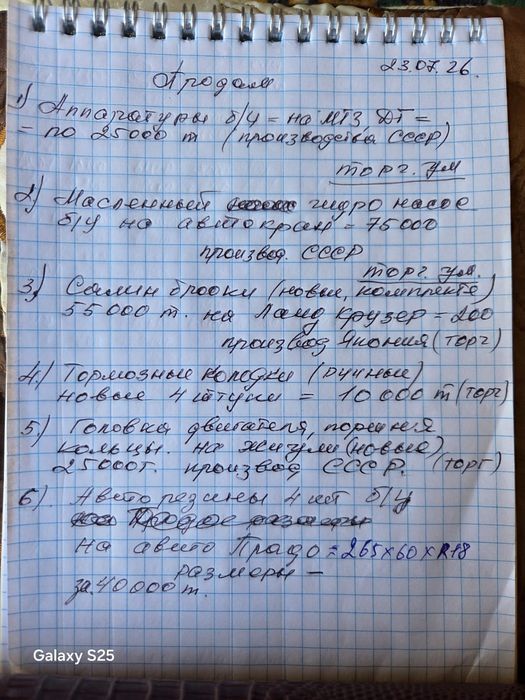 23.07.26.
Продам
1) Аппаратуры б/у = на МТЗ, ДТ =
= по 25000 т (производства СССР)
торг. ум
2) Масленный гидро насос
б/у на автокран = 75000
произвад. СССР
торг. ум.
3) Салин блоки (новые, комплекте)
55000 т. на Ланд Крузер = 200
произвад Япония (торг)
4.) Тормозные колодки (ручные)
новые 4 штуки = 10000 т (торг)
5) Головка двигателя, поршня
кольцы. на жигули (новые)
25000т. произвад СССР. (торг)
6). Авто резины 4 шт б/у
на авто Прадо = 265х60хR18
размеры –
за 40000 т.
Galaxy S25